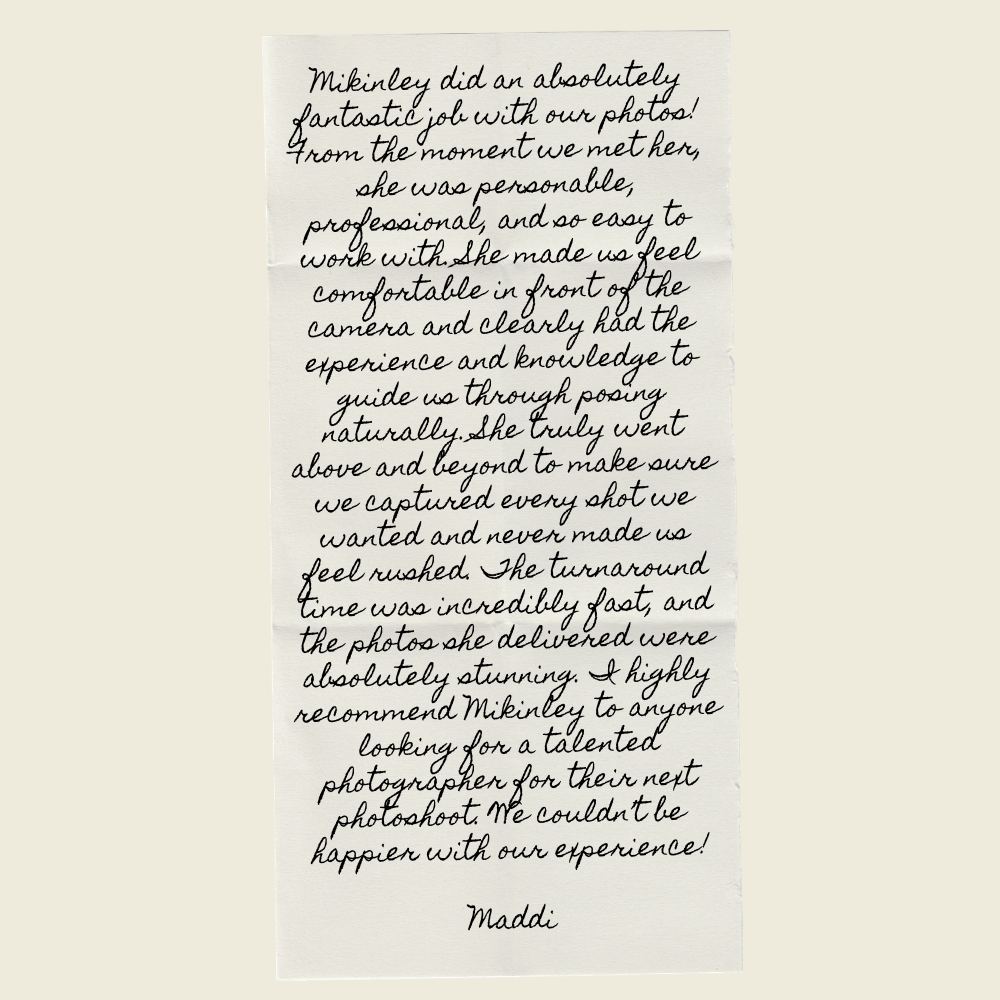 Mikinley did an absolutely
fantastic job with our photos!
From the moment we met her,
she was personable,
professional, and so easy to
work with. She made us feel
comfortable in front of the
camera and clearly had the
experience and knowledge to
guide us through posing
naturally. She truly went
above and beyond to make sure
we captured every shot we
wanted and never made us
feel rushed. The turnaround
time was incredibly fast, and
the photos she delivered were
absolutely stunning. I highly
recommend Mikinley to anyone
looking for a talented
photographer for their next
photoshoot. We couldn't be
happier with our experience!
Maddi